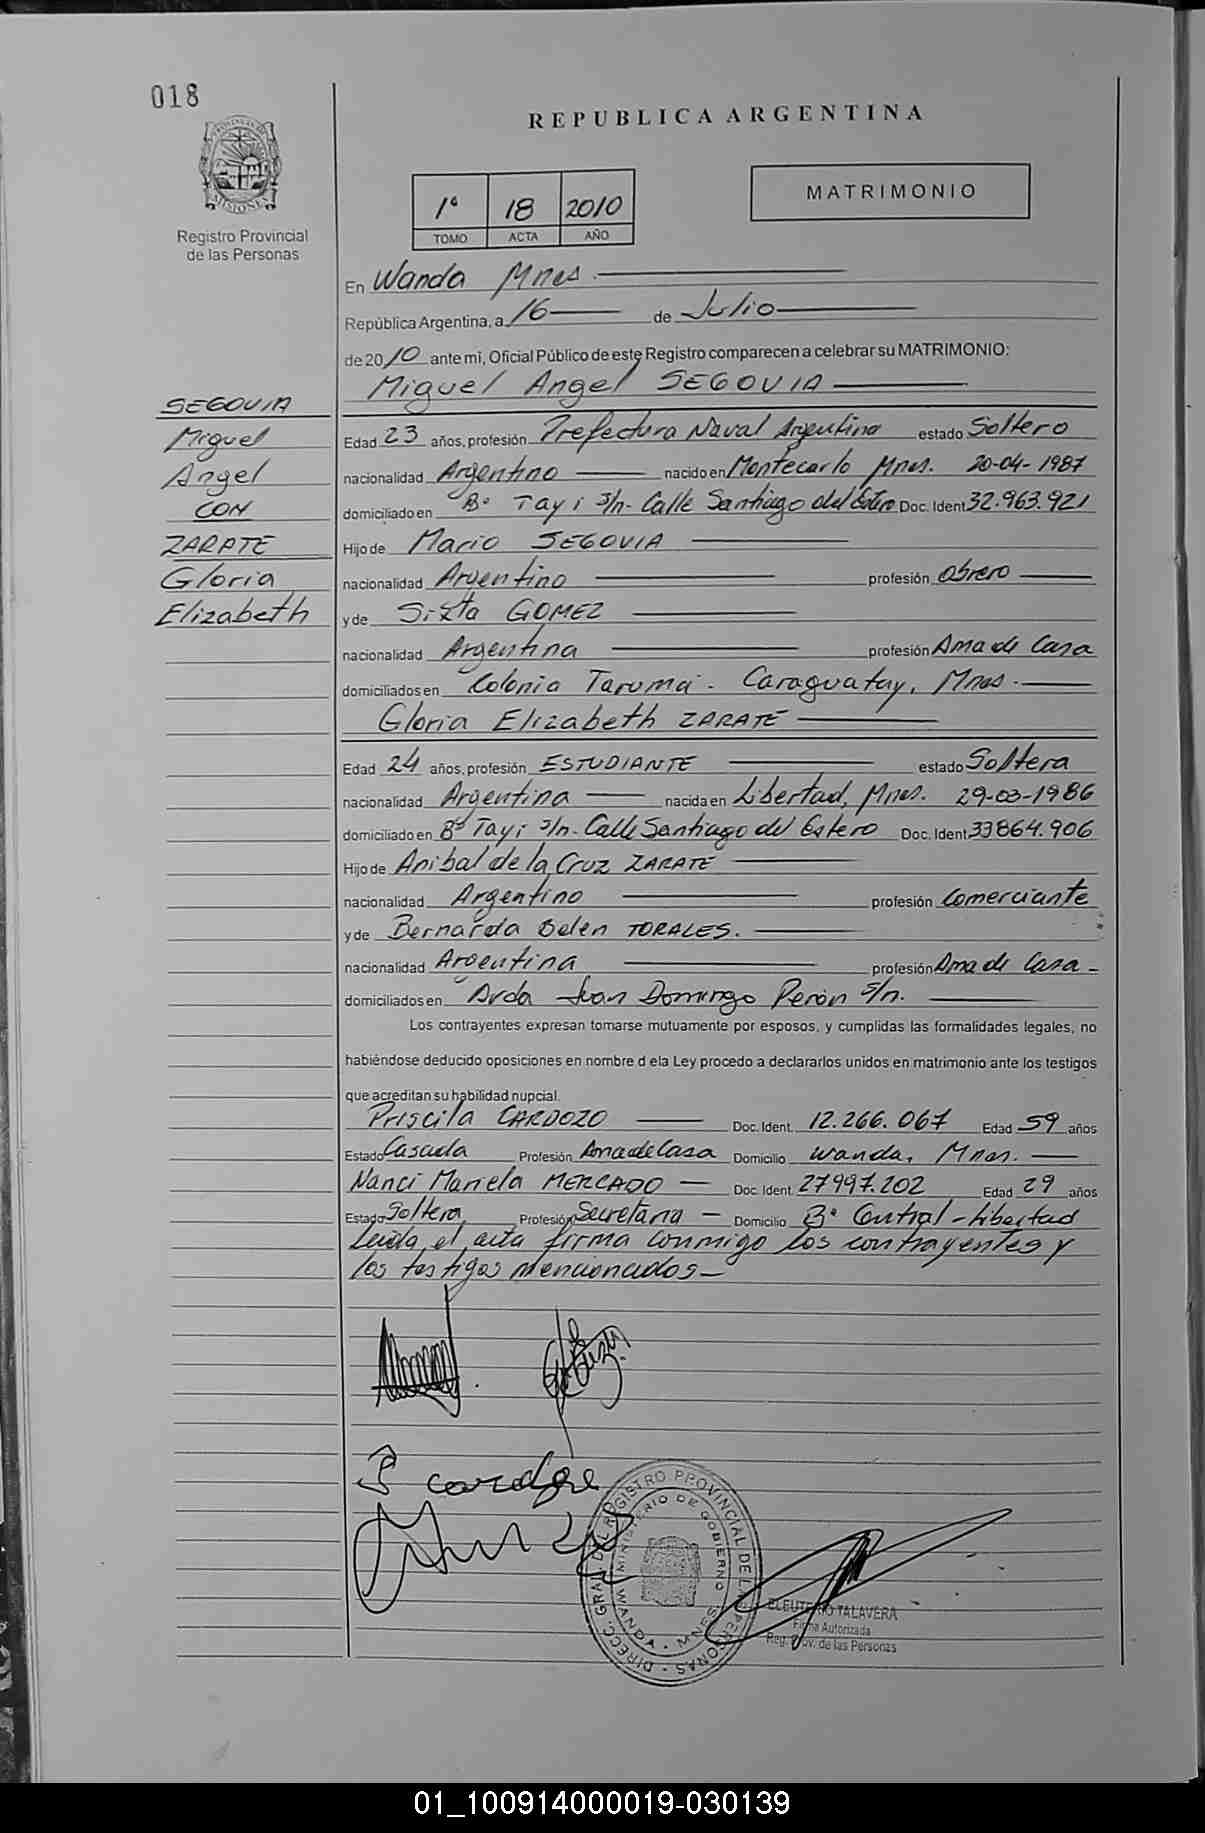 018
REPUBLICA ARGENTINA
PROVINCIA DE MISIONES
Registro Provincial
de las Personas
1ª 18 2010
TOMO ACTA AÑO
MATRIMONIO
En Wanda Mnes.
República Argentina, a 16 de Julio
de 2010 ante mi, Oficial Público de este Registro comparecen a celebrar su MATRIMONIO:
Miguel Angel SEGOVIA
SEGOVIA
Miguel
Angel
CON
ZARATE
Gloria
Elizabeth
Edad 23 años, profesión Prefectura Naval Argentina estado Soltero
nacionalidad Argentino nacido en Montecarlo Mnes. 20-04-1987
domiciliado en Bº Tayi s/n- Calle Santiago del Estero Doc. Ident 32.963.921
Hijo de Mario SEGOVIA
nacionalidad Argentino profesión Obrero
y de Sixta GOMEZ
nacionalidad Argentina profesión Ama de Casa
domiciliados en Colonia Taruma - Caraguatay, Mnes.
Gloria Elizabeth ZARATE
Edad 24 años, profesión ESTUDIANTE estado Soltera
nacionalidad Argentina nacida en Libertad, Mnes. 29-03-1986
domiciliado en Bº Tayi s/n- Calle Santiago del Estero Doc. Ident. 33864.906
Hijo de Anibal de la Cruz ZARATE
nacionalidad Argentino profesión Comerciante
y de Bernarda Belen TORALES.
nacionalidad Argentina profesión Ama de Casa -
domiciliados en Avda Juan Domingo Perón s/n.
Los contrayentes expresan tomarse mutuamente por esposos, y cumplidas las formalidades legales, no
habiéndose deducido oposiciones en nombre d ela Ley procedo a declararlos unidos en matrimonio ante los testigos
que acreditan su habilidad nupcial.
Priscila CARDOZO Doc. Ident. 12.266.067 Edad 59 años
Estado Casada Profesión Ama de Casa Domicilio Wanda, Mnes.
Nanci Mariela MERCADO Doc. Ident. 27997.202 Edad 29 años
Estado Soltera Profesión Secretaria Domicilio Bº Central - Libertad
Leída el acta firma conmigo los contrayentes y
los testigos mencionados
DIRECC. GRAL. DEL REGISTRO PROVINCIAL DE LAS PERSONAS
MINISTERIO DE GOBIERNO
WANDA - MNES.
ELEUTERIO TALAVERA
Firma Autorizada
Reg. Prov. de las Personas
01_100914000019-030139